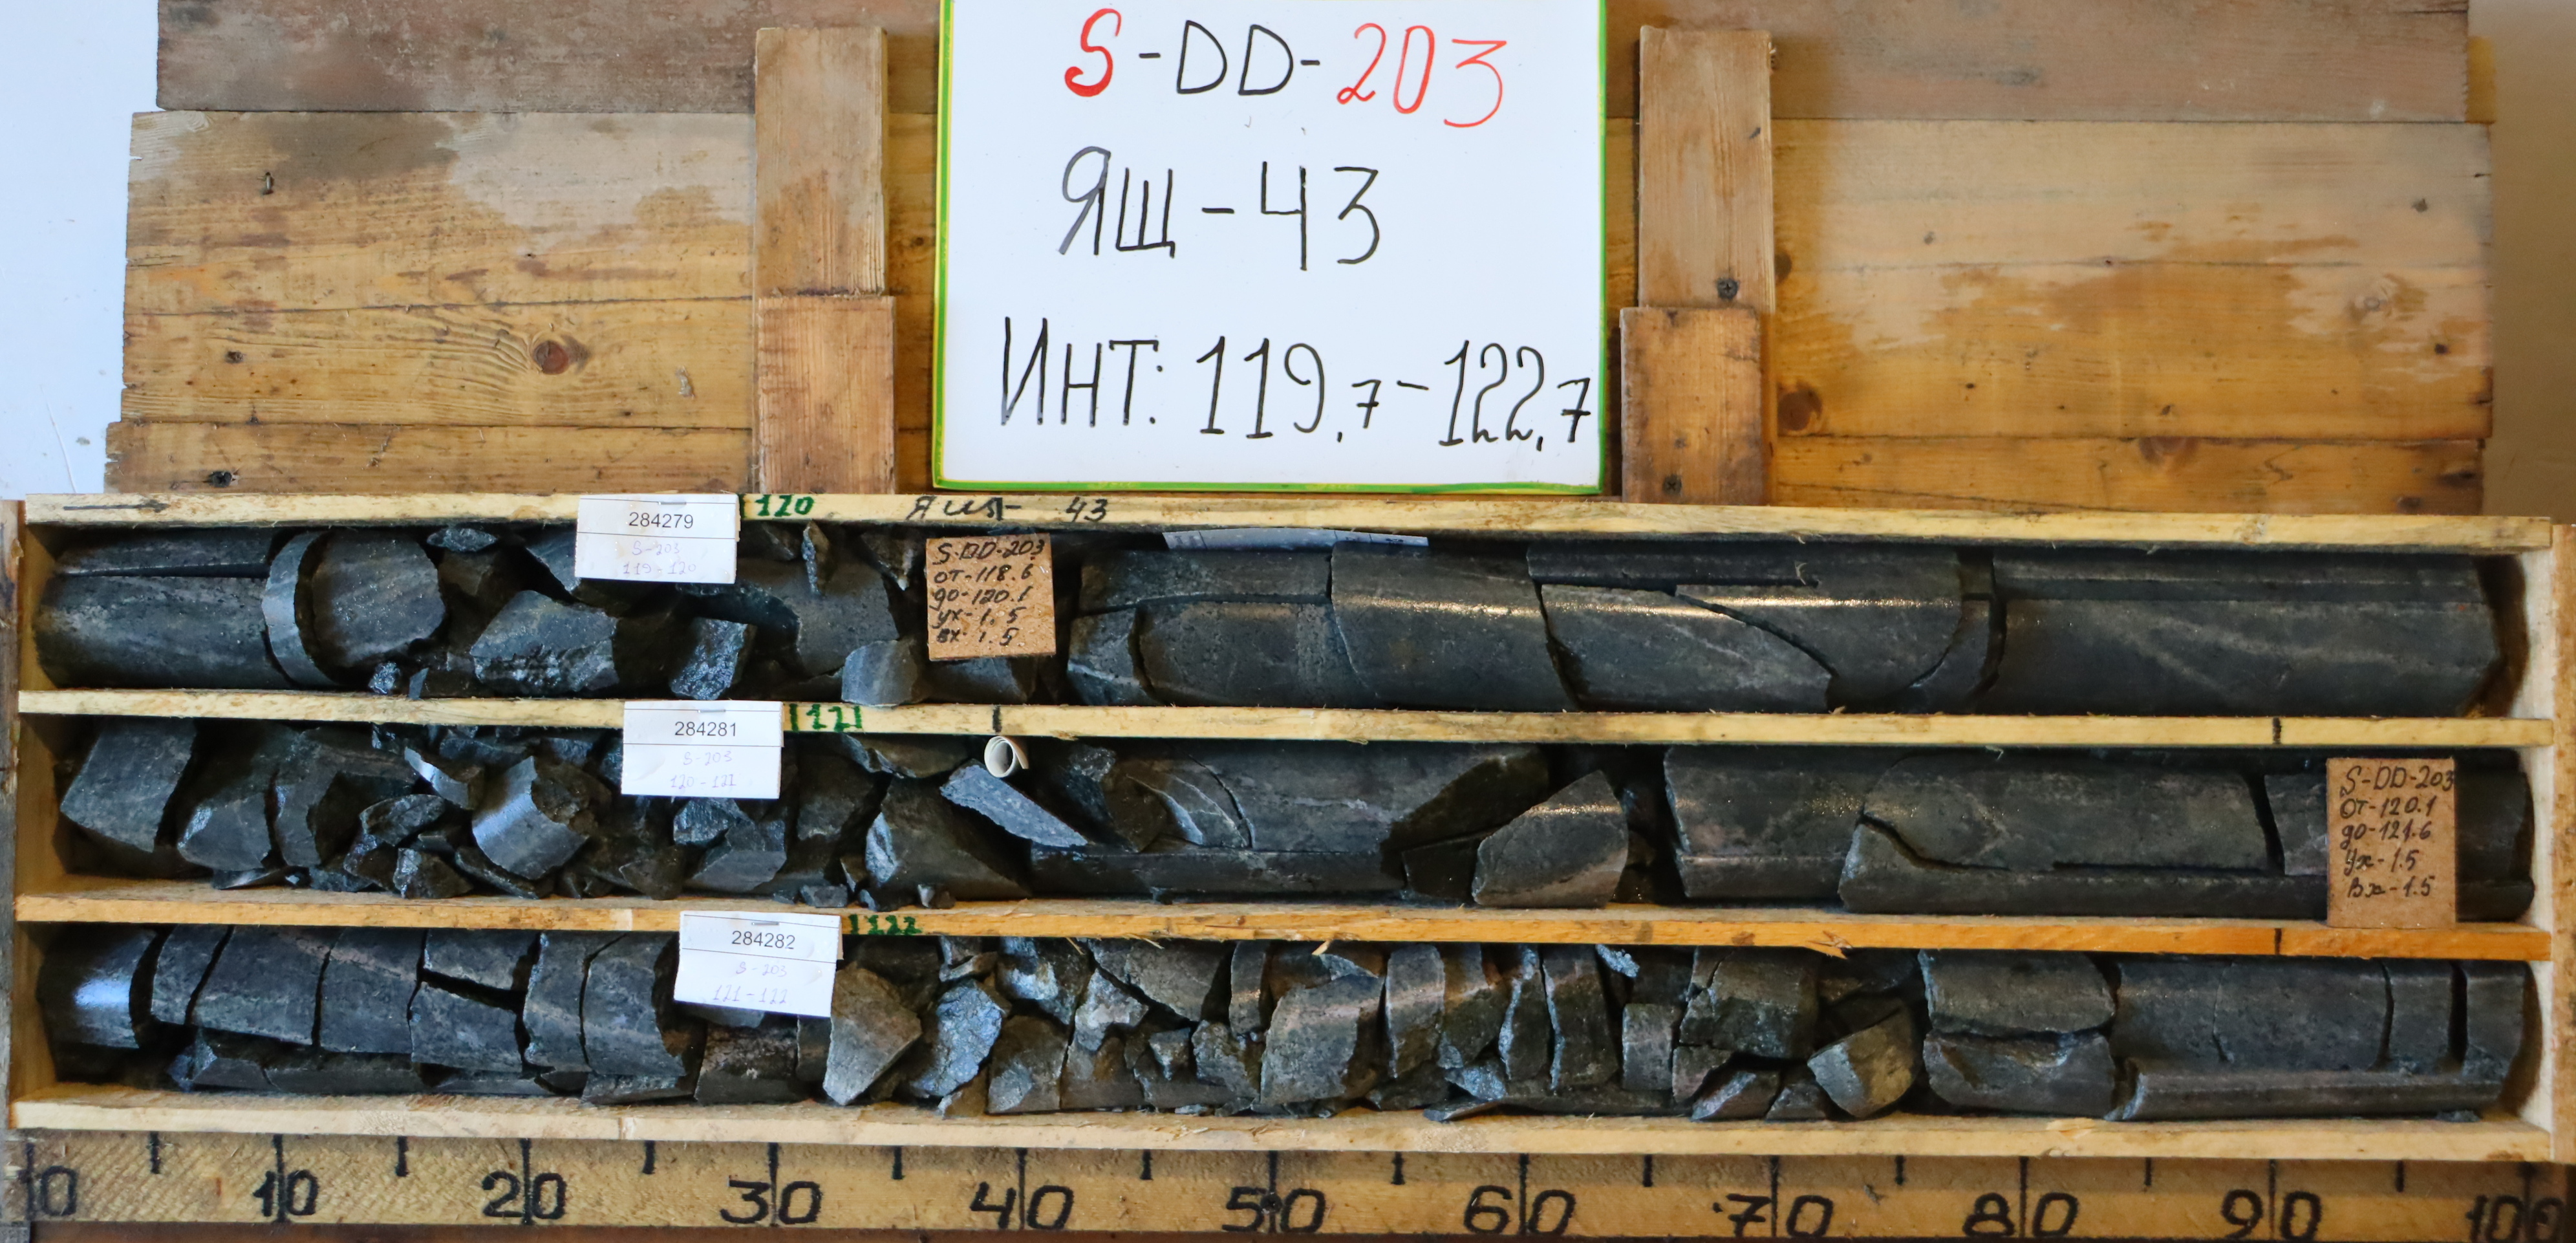 S-DD-203
ЯЩ-43
ИНТ: 119,7-122,7
120
Ящ- 43
284279
S-203
119-120
S-DD-203
от-118.6
до-120.1
ух-1.5
вх-1.5
284281
S-203
120-121
121
S-DD-203
от-120.1
до-121.6
ух-1.5
вх-1.5
284282
S-203
121-122
122
0 10 20 30 40 50 60 70 80 90 100